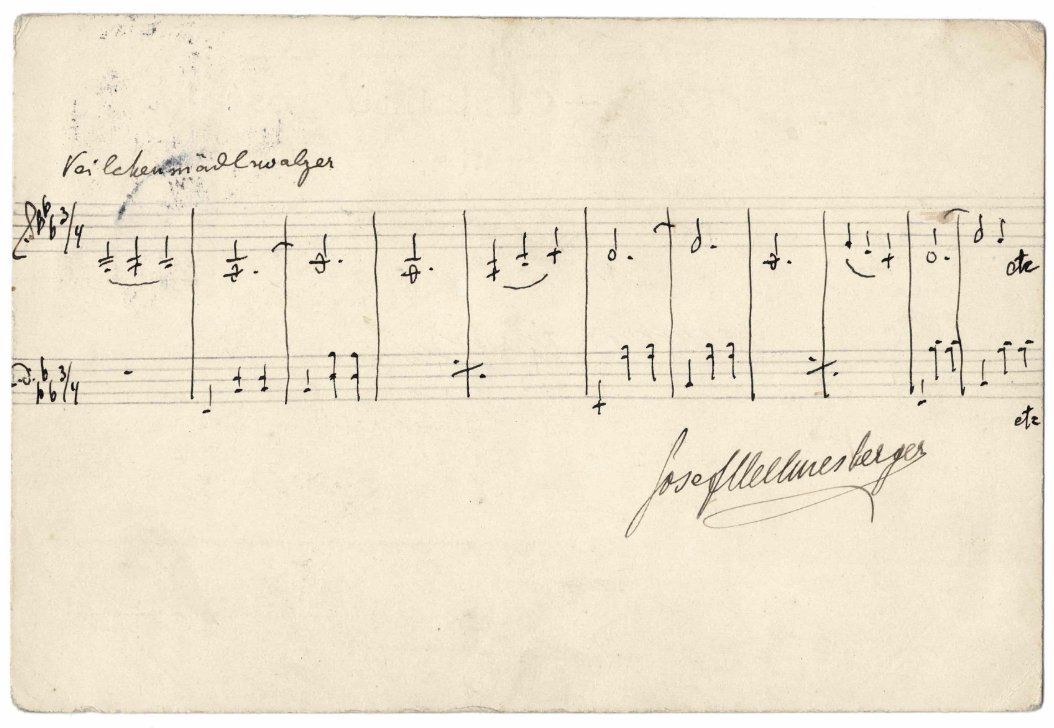 Veilchenmädlwalzer
3/4
3/4
etc
etc
Josef Hellmesberger